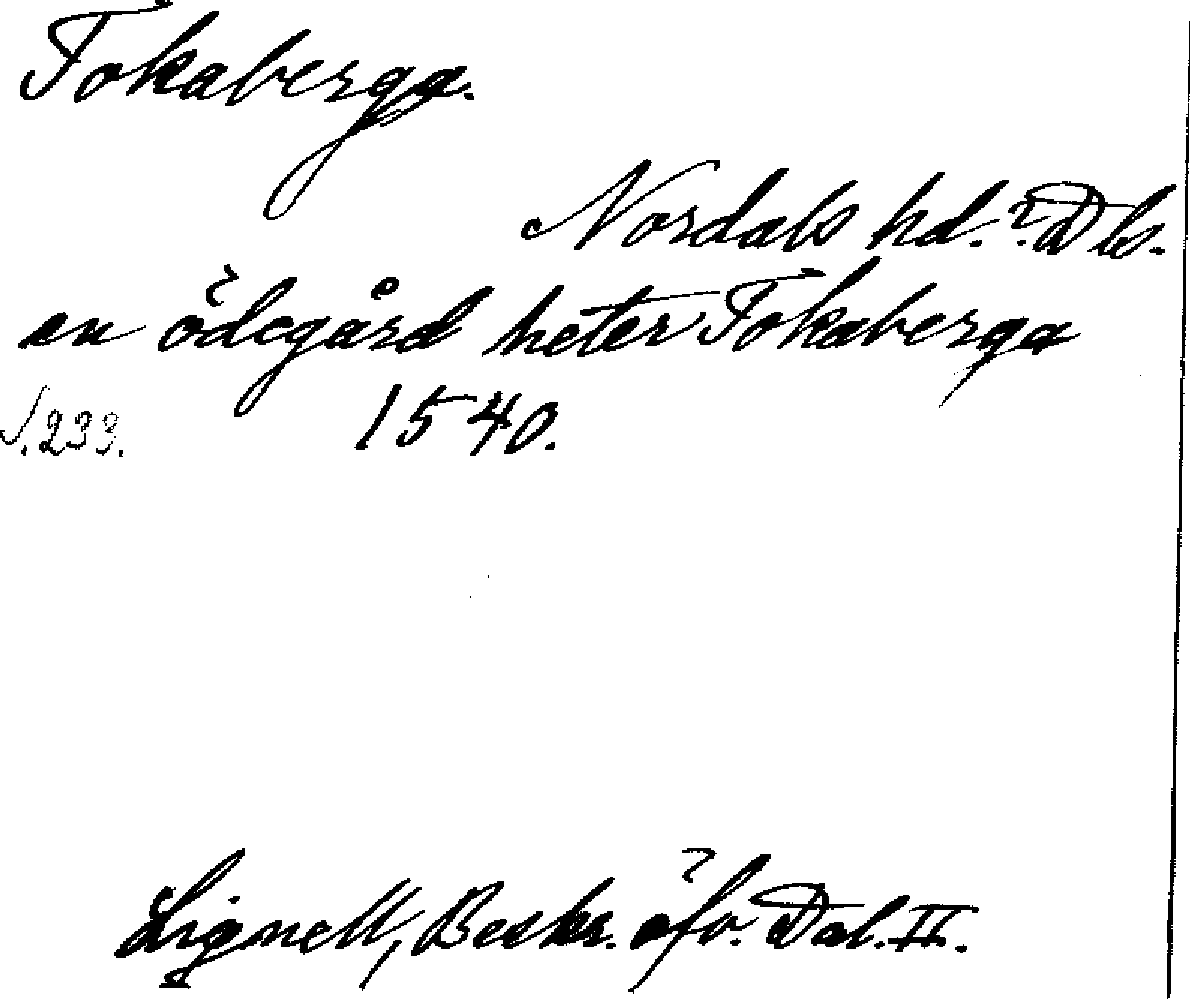 Tokaberga.
Nordals hd.? Dls.
en ödegård heter Tokaberga
S. 233. 1540.
Lignell, Beskr. öfv. Dal. II.